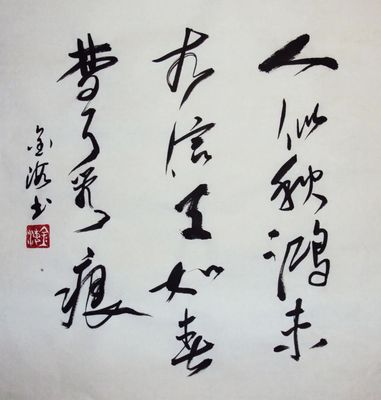 人似秋鸿来
有信事如春
夢了無痕
金海书